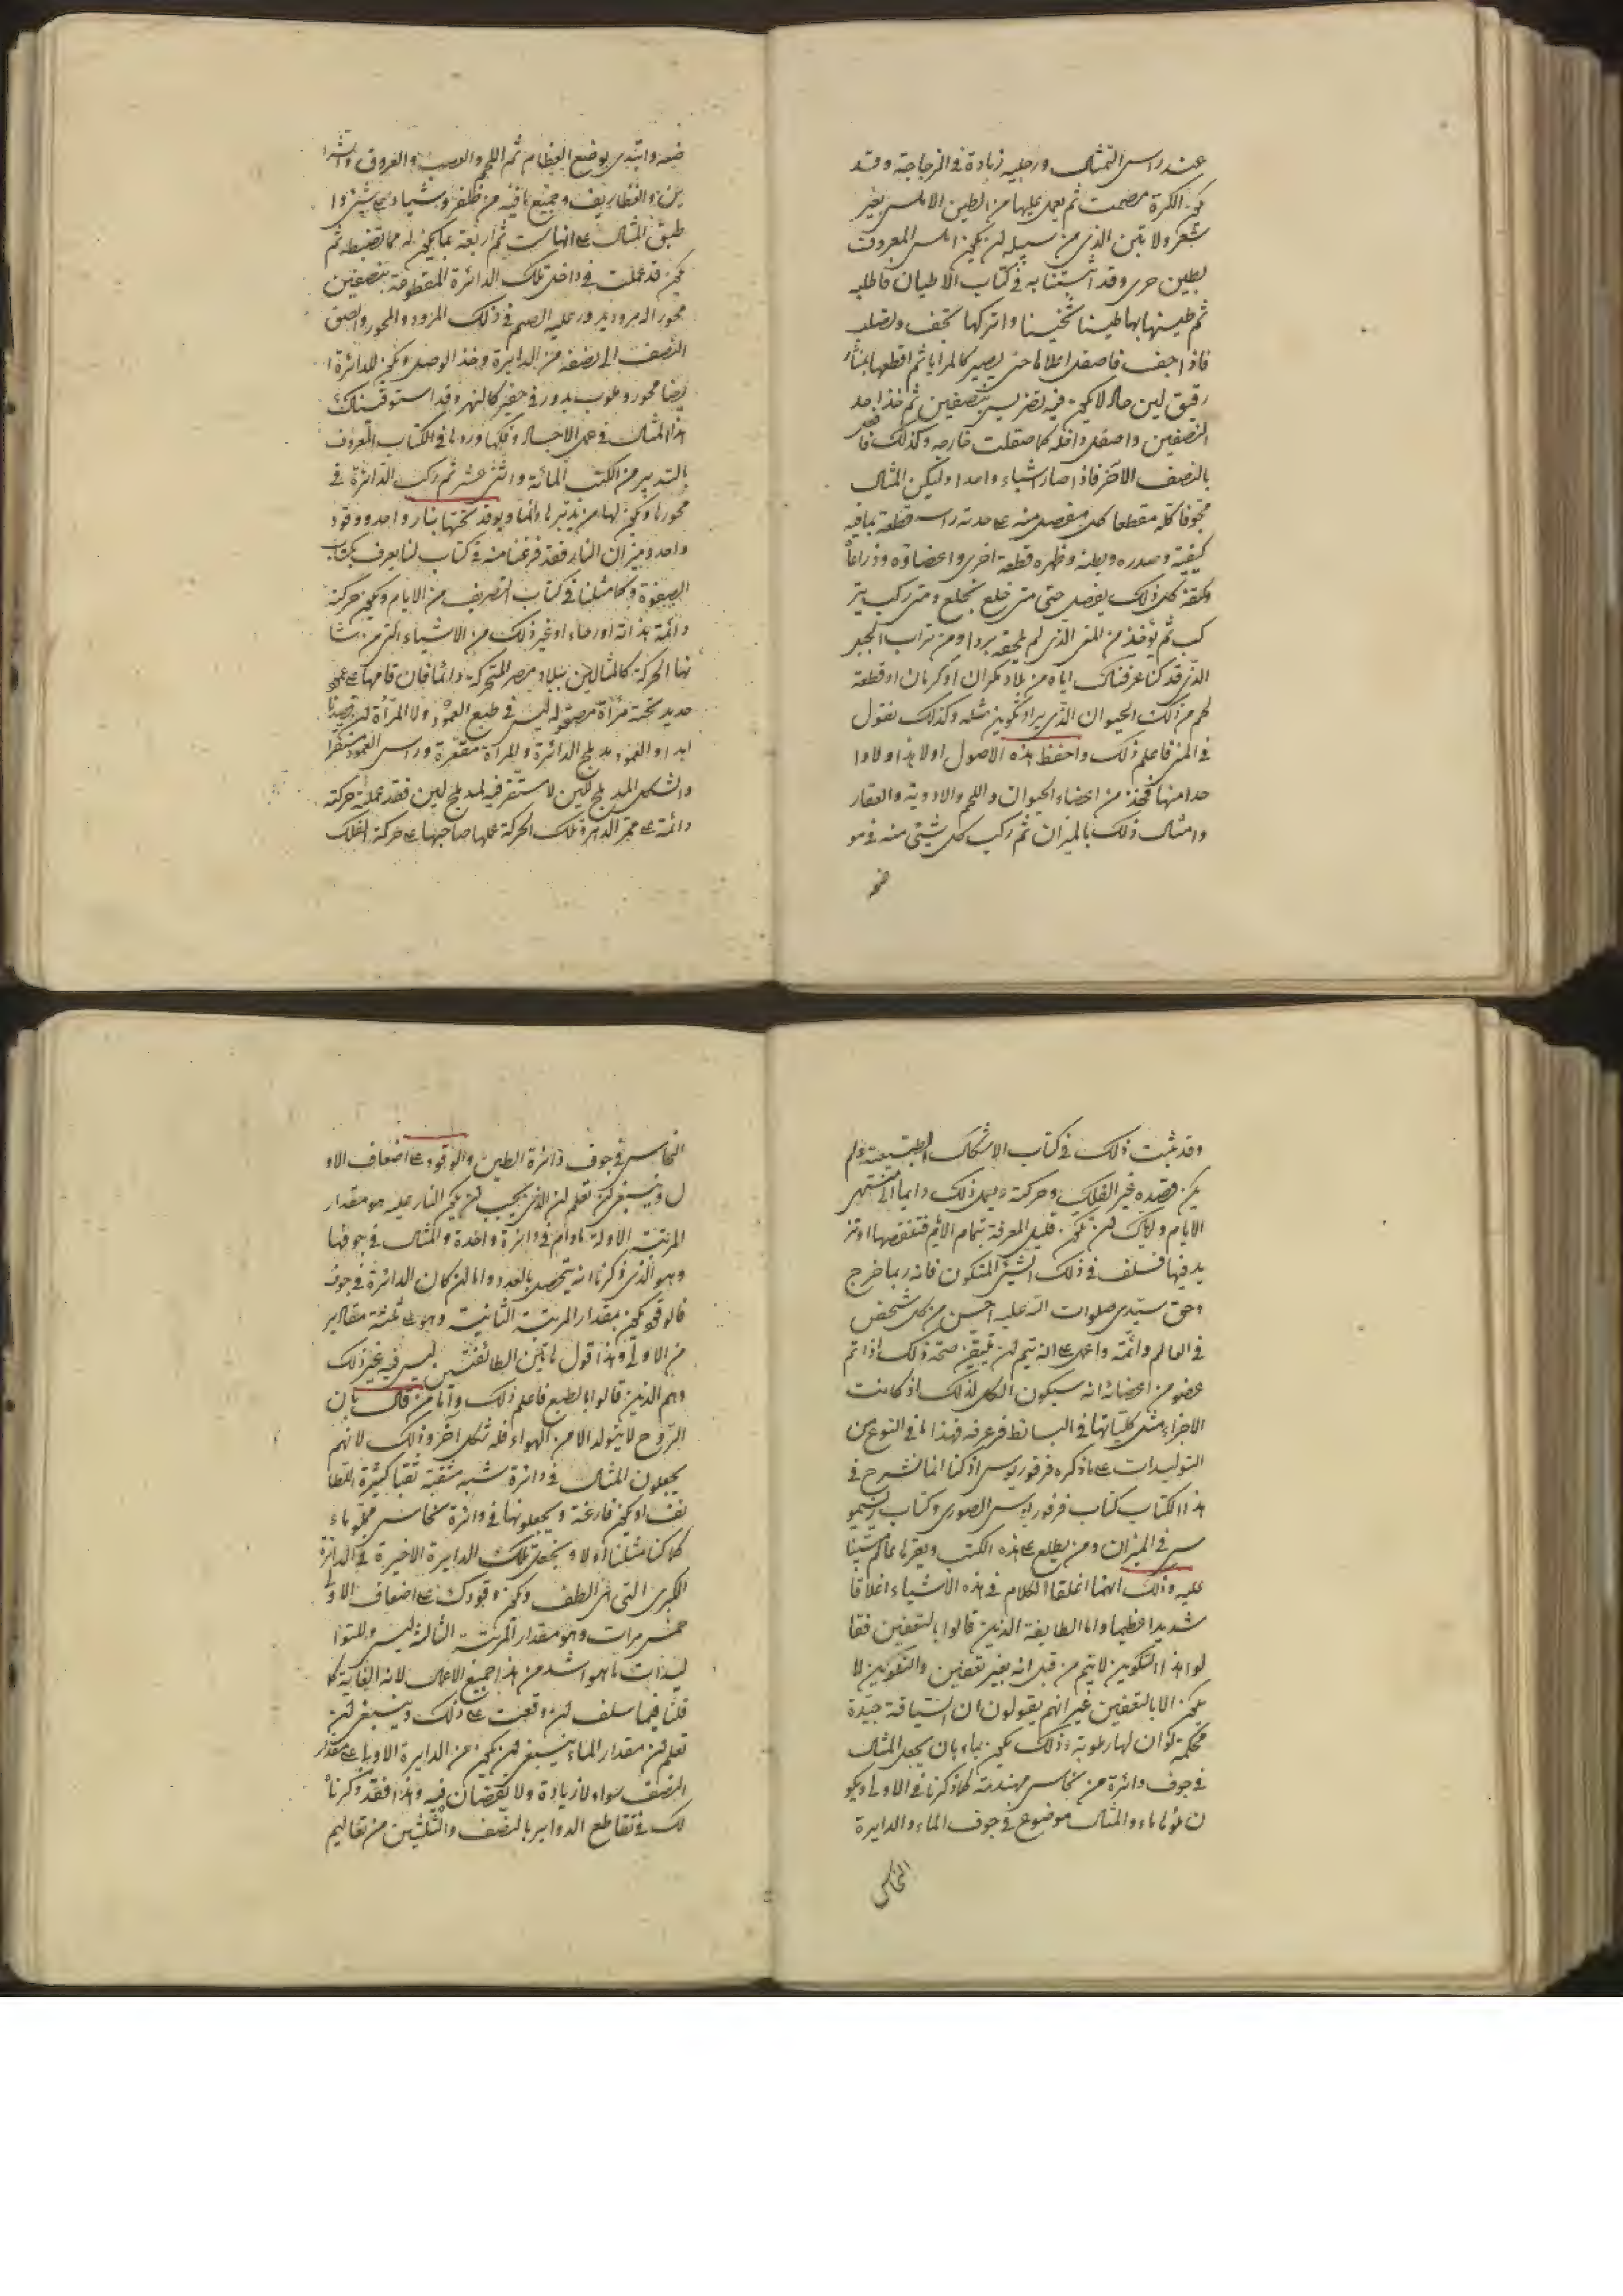 عند راس التمثال ورجليه زيادة في الزجاجة وقد
يكون الكرة مصمت ثم يعمل عليها من الطين الاملس بغير
شعر ولا تبن الذي من سبيله ان يكون املس المعروف
بطين حر وقد اثبتنا به في كتاب الاطيان فاطلبه
ثم طينها بها طينا ثخينا واتركها تجف وتصلب
فاذا جف فاصقل اعلاها حتى يصير كالمرايا ثم اقطعها بمنشار
رقيق لين حاد لا يكون فيه تضريس بنصفين ثم خذ احد
النصفين واصقل داخله كما صقلت خارجه وكذلك فافعل
بالنصف الآخر فاذا صارا شياء واحدا وليكن المثال
مجوفا كله مقطعا كل مفصل منه على حدته راسه قطعة بما فيه
كيفيته وصدره وبطنه وظهره قطعة اخرى واعضاؤه وذراعاه
وكفه كل ذلك يفصل حتى متى خلع ينخلع ومتى ركب يتر
كب ثم يؤخذ من المني الذي لم يلحقه بردا ومن تراب الجير
الذي قد كنا عرفناك اياه من بلاد مكران او كرمان او قطعة
لحم من ذلك الحيوان الذي يراد تكوين مثله وكذلك نقول
في المني فاعلم ذلك واحفظ هذه الاصول اولا هذا ولا وا
حدا منها فخذ من اعضاء الحيوان واللحم والادوية والعقار
وامثال ذلك بالميزان ثم ركب كل شيئ منه في مو
ضعه
ضعه وابتدي بوضع العظام ثم اللحم والعصب والعروق والشرا
يين والغضاريف وجميع ما فيه من ظفر و شياء شيئا وا
طبق المثال على انها ست ثم اربعة مما يكون له مما تضبطه ثم
يكون قد عملت في داخل تلك الدائرة المقطوعة بنصفين
محور اله مرود يدور عليه الصم في ذلك المزود والمحور والصق
النصف الى نصفه من الدايرة وخذ الوصل ويكون للدائرة ا
يضا محور ودلوب يدور في حفير كالنهر وقد استوقيناك
هذا المثال في عمل الاجساد وفكها وردها في الكتاب المعروف
بالتدبير من الكتب المائة واثنى عشر ثم ركب الدائرة في
محورها ويكون لها من يديرها دائما ويوقد تحتها بنار واحد ووقود
واحد وميزان النار فقد فرغنا منه في كتاب لنا يعرف بكتاب
الصفوة وكما مثلنا في كتاب التصريف من الايام ويكون حركته
دائمة بذاته او رحاء او غير ذلك من الاشياء التي من شا
نها الحركة كالمثالين ببلاد مصر المتحركة دائما فان قامها على عمود
حديد تحته مرآة مصقولة ليس في طبع العمود ولا المرآة ان يصديا
ابدا والعمود مدبلج الدائرة والمرآة مقعرة وراس العمود مستقرا
والشكل المدبلج لين لا مستقر فيه لمدبلج لين فقد عملت حركته
دائمة على ممر الدهر وتلك الحركة عملها صاحبها على حركة الفلك
وقد ثبت ذلك في كتاب الاشكال الطبيعية ولم
يكن قصده غير الفلك وحركته ويعمل ذلك دايما الى منتهى
الايام واياك ان تكون قليل المعرفة بتمام الايام فتنقصها او تز
يد فيها فتتلف في ذلك الشيئ المتكون فانه ربما خرج
وحق سيدي صلوات الله عليه احسن من كل شخص
في العالم وائمة واعمل على انه يتم ان تتيقن صحة ذلك اذا تم
عضو من اعضائه انه سيكون الكل لذلك اذ كانت
الاجزاء مثل كلياتها في البسائط فرعرفه فهذا ما في النوع من
التوليدات على ما ذكره فرفوريوس اذ كنا انما نشرح في
هذا الكتاب كتاب فرفوريوس الصوري وكتاب زسيمو
س في الميزان ومن يطلع على هذه الكتب ويقرأها علم شيئا
عليه وذلك انهما اغلقا الكلام في هذه الاشياء اغلاقا
شديدا عظيما واما الطايفة الذين قالوا بالتعفين فقا
لوا هذا التكوين لا يتم من قبل انه بغير تعفين والتكوين لا
يكون الا بالتعفين غير انهم يقولون ان السياقة جيدة
محكمة لو ان لها رطوبة وذلك يكون بماء بان يجعل المثال
في جوف دائرة من نحاس مهندمة كما ذكرنا في الاولى ويكو
ن مملوءا ماء والمثال موضوع في جوف الماء والدايرة
النحاس
النحاس في جوف دائرة الطين والوقود على اضعاف الاو
ل وينبغي ان تعلم ان الذي يجب ان يكون النار عليه هو مقدار
المرتبة الاولة مادام في دائرة واحدة والمثال في جوفها
وهو الذي ذكرنا انه يتحصل بالعدد واما ان كان الدائرة في جوف
فالوقود يكون بمقدار المرتبة الثانية وهو على ثلثة مقادير
من الاولى وهذا قول هاتين الطائفتين ليس فيه غير ذلك
وهم الذين قالوا بالطبع فاعلم ذلك واما من قال بان
الروح لا يتولد الا من الهواء فله شكل آخر وذلك لانهم
يجعلون المثال في دائرة شبه مثقبة ثقبا كثيرة اللطا
نف او يكون فارغة ويجعلونها في دائرة نحاس مملوءاء
كما كنا مثلنا اولا ويجعل تلك الدايرة الاخيرة في الدائرة
الكبرى التي من الطف ويكون وقودك على اضعاف الاول
خمس مرات وهو مقدار المرتبة الثالثة ليس وللتوا
ليدات ما هو اشد من هذا جميع الاعمال لانه الغاية كما
قلنا فيما سلف ان وقعت على ذلك وينبغي ان
تعلم ان مقدار الماء ينبغي ان يكون من الدايرة الاولى على مقدار
النصف سواء لا زيادة ولا نقصان فيه وهذا فقد ذكرناه
لك في تقاطع الدواير بالنصف والثلثين من تعاليم